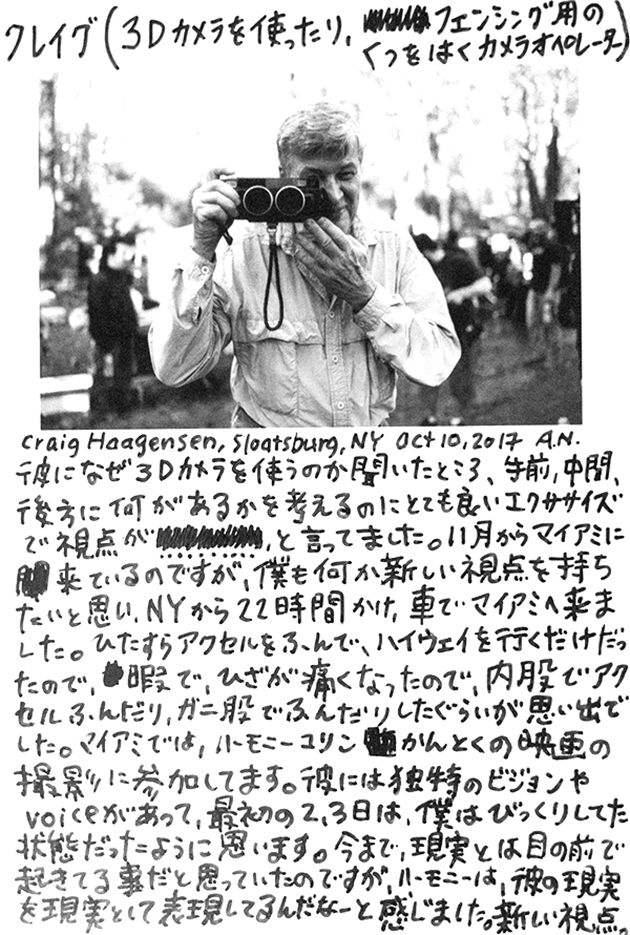 クレイグ(3Dカメラを使ったり、フェンシング用の
くつをはくカメラオペレーター)
Craig Haagensen, Sloatsburg, NY Oct 10, 2017 A.N.
彼になぜ3Dカメラを使うのか聞いたところ、手前,中間、
後方に何があるかを考えるのにとても良いエクササイズ
で視点が、と言ってました。11月からマイアミに
来ているのですが、僕も何か新しい視点を持ち
たいと思い、NYから22時間かけ、車でマイアミへ来ま
した。ひたすらアクセルをふんで、ハイウェイを行くだけだっ
たので、暇で、ひざが痛くなったので、内股でアク
セルふんだり、ガニ股でふんだりしたぐらいが思い出で
した。マイアミでは、ハーモニーコリンかんとくの映画の
撮影に参加してます。彼には独特のビジョンや
voiceがあって、最初の2,3日は、僕はびっくりしてた
状態だったように思います。今まで、現実とは目の前で
起きてる事だと思っていたのですが、ハーモニーは、彼の現実
を現実として表現してるんだなーと感じました。新しい視点。